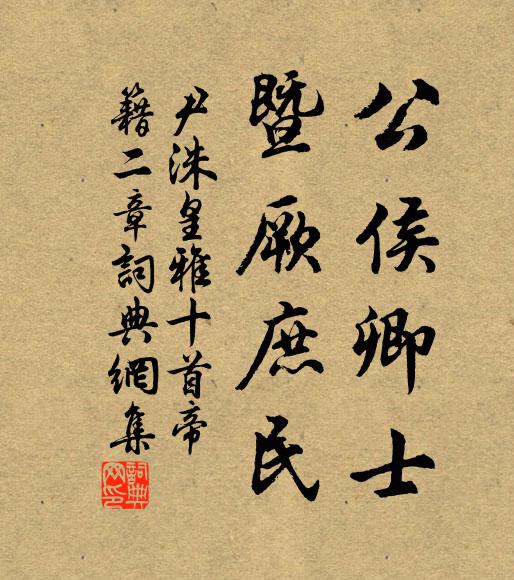 公侯卿士
暨厥庶民
尹洙皇雅十首帝
籍二章詞典網集
詞典網印